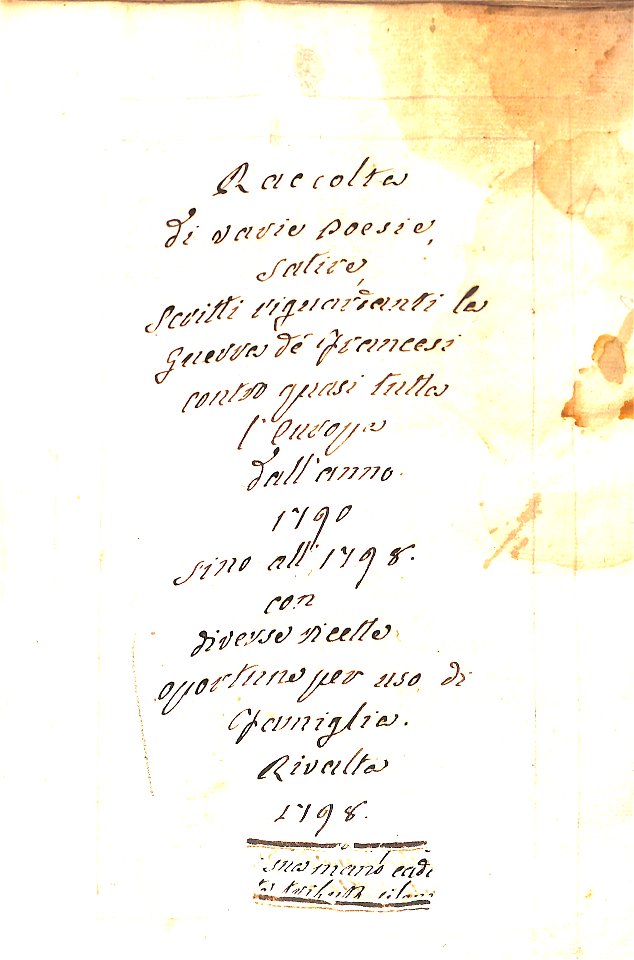 Raccolta
di varie poesie,
satire,
Scritti riguardanti la
Guerra de' Francesi
contro quasi tutta
l'Europa
dall'anno
1790
sino all'1798.
con
diverse ricette
oportune per uso di
Famiglia.
Rivalta
1798.
mano